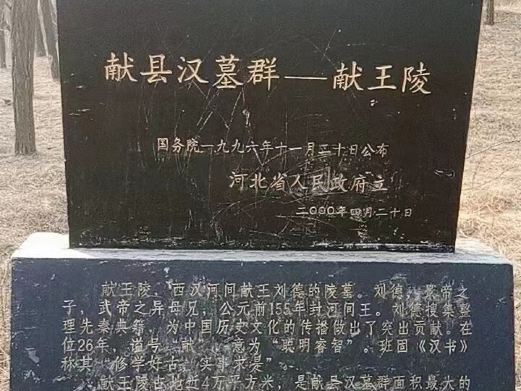 献县汉墓群—献王陵
国务院一九九六年十一月二十日公布
河北省人民政府立
二〇〇〇年四月二十日
献王陵、西汉河间献王刘德的陵墓。刘德，景帝之
子，武帝之异母兄，公元前155年封河间王。刘德搜集整
理先秦典籍，为中国历史文化的传播做出了突出贡献，在
位26年，谥号“献”，意为“聪明睿智”。班固《汉书》
称其“修学好古，实事求是”。
献王陵占地近4万平方米，是献县汉墓群面积最大的